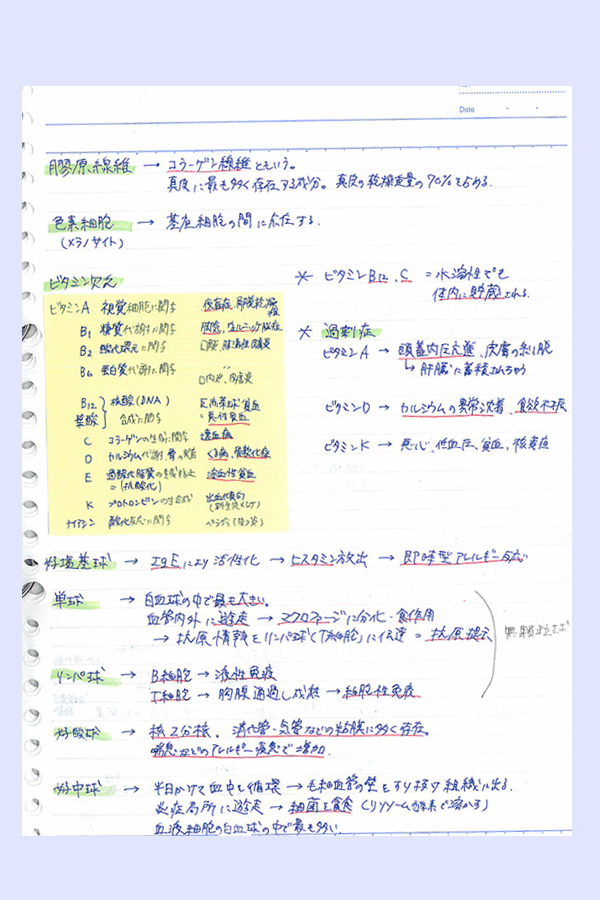 Date
膠原線維 → コラーゲン線維ともいう。
真皮に最も多く存在する成分。真皮の乾燥重量の70%を占める。
色素細胞 → 基底細胞の間に存在する。
(メラノサイト)
ビタミン欠乏
ビタミンA 視覚細胞に関与 夜盲症、角膜乾燥症
B1 糖質代謝に関与 脚気、ウェルニッケ脳症
B2 酸化還元に関与 口唇、脂漏性皮膚炎
B6 蛋白質代謝に関与 口内炎、皮膚炎
B12 葉酸 } 核酸(DNA)合成に関与 巨赤芽球性貧血=悪性貧血
C コラーゲンの生成に関与 壊血病
D カルシウム代謝、骨の くる病、骨軟化症
E 過酸化脂質の生成防止=(抗酸化) 溶血性貧血
K プロトロンビンの生成 出血傾向
ナイアシン 酸化反応に関与 ペラグラ
* ビタミンB12、C = 水溶性でも
体内に貯蔵される。
* 過剰症
ビタミンA → 頭蓋内圧亢進、皮膚の
↳ 肝臓に蓄積されちゃう
ビタミンD → カルシウムの異常沈着、食欲不振
ビタミンK → 悪心、低血圧、貧血、
好塩基球 → IgEにより活性化 → ヒスタミン放出 → 即時型アレルギー反応
単球 → 白血球の中で最も大きい。
血管内外に遊走 → マクロファージに分化・食作用
→ 抗原情報をリンパ球(T細胞)に伝達 = 抗原提示
リンパ球 → B細胞 → 液性免疫
T細胞 → 胸腺通過し成熟 → 細胞性免疫
無顆粒
好酸球 → 核2分核、消化管・気管などの粘膜に多く存在。
喘息などのアレルギー疾患で増加。
好中球 → 半日かけて血中を循環 → 毛細血管の壁をすり抜け組織に出る。
炎症局所に遊走 → 細菌を貪食 (リソソーム酵素で溶かす)
血液細胞の白血球の中で最も多い